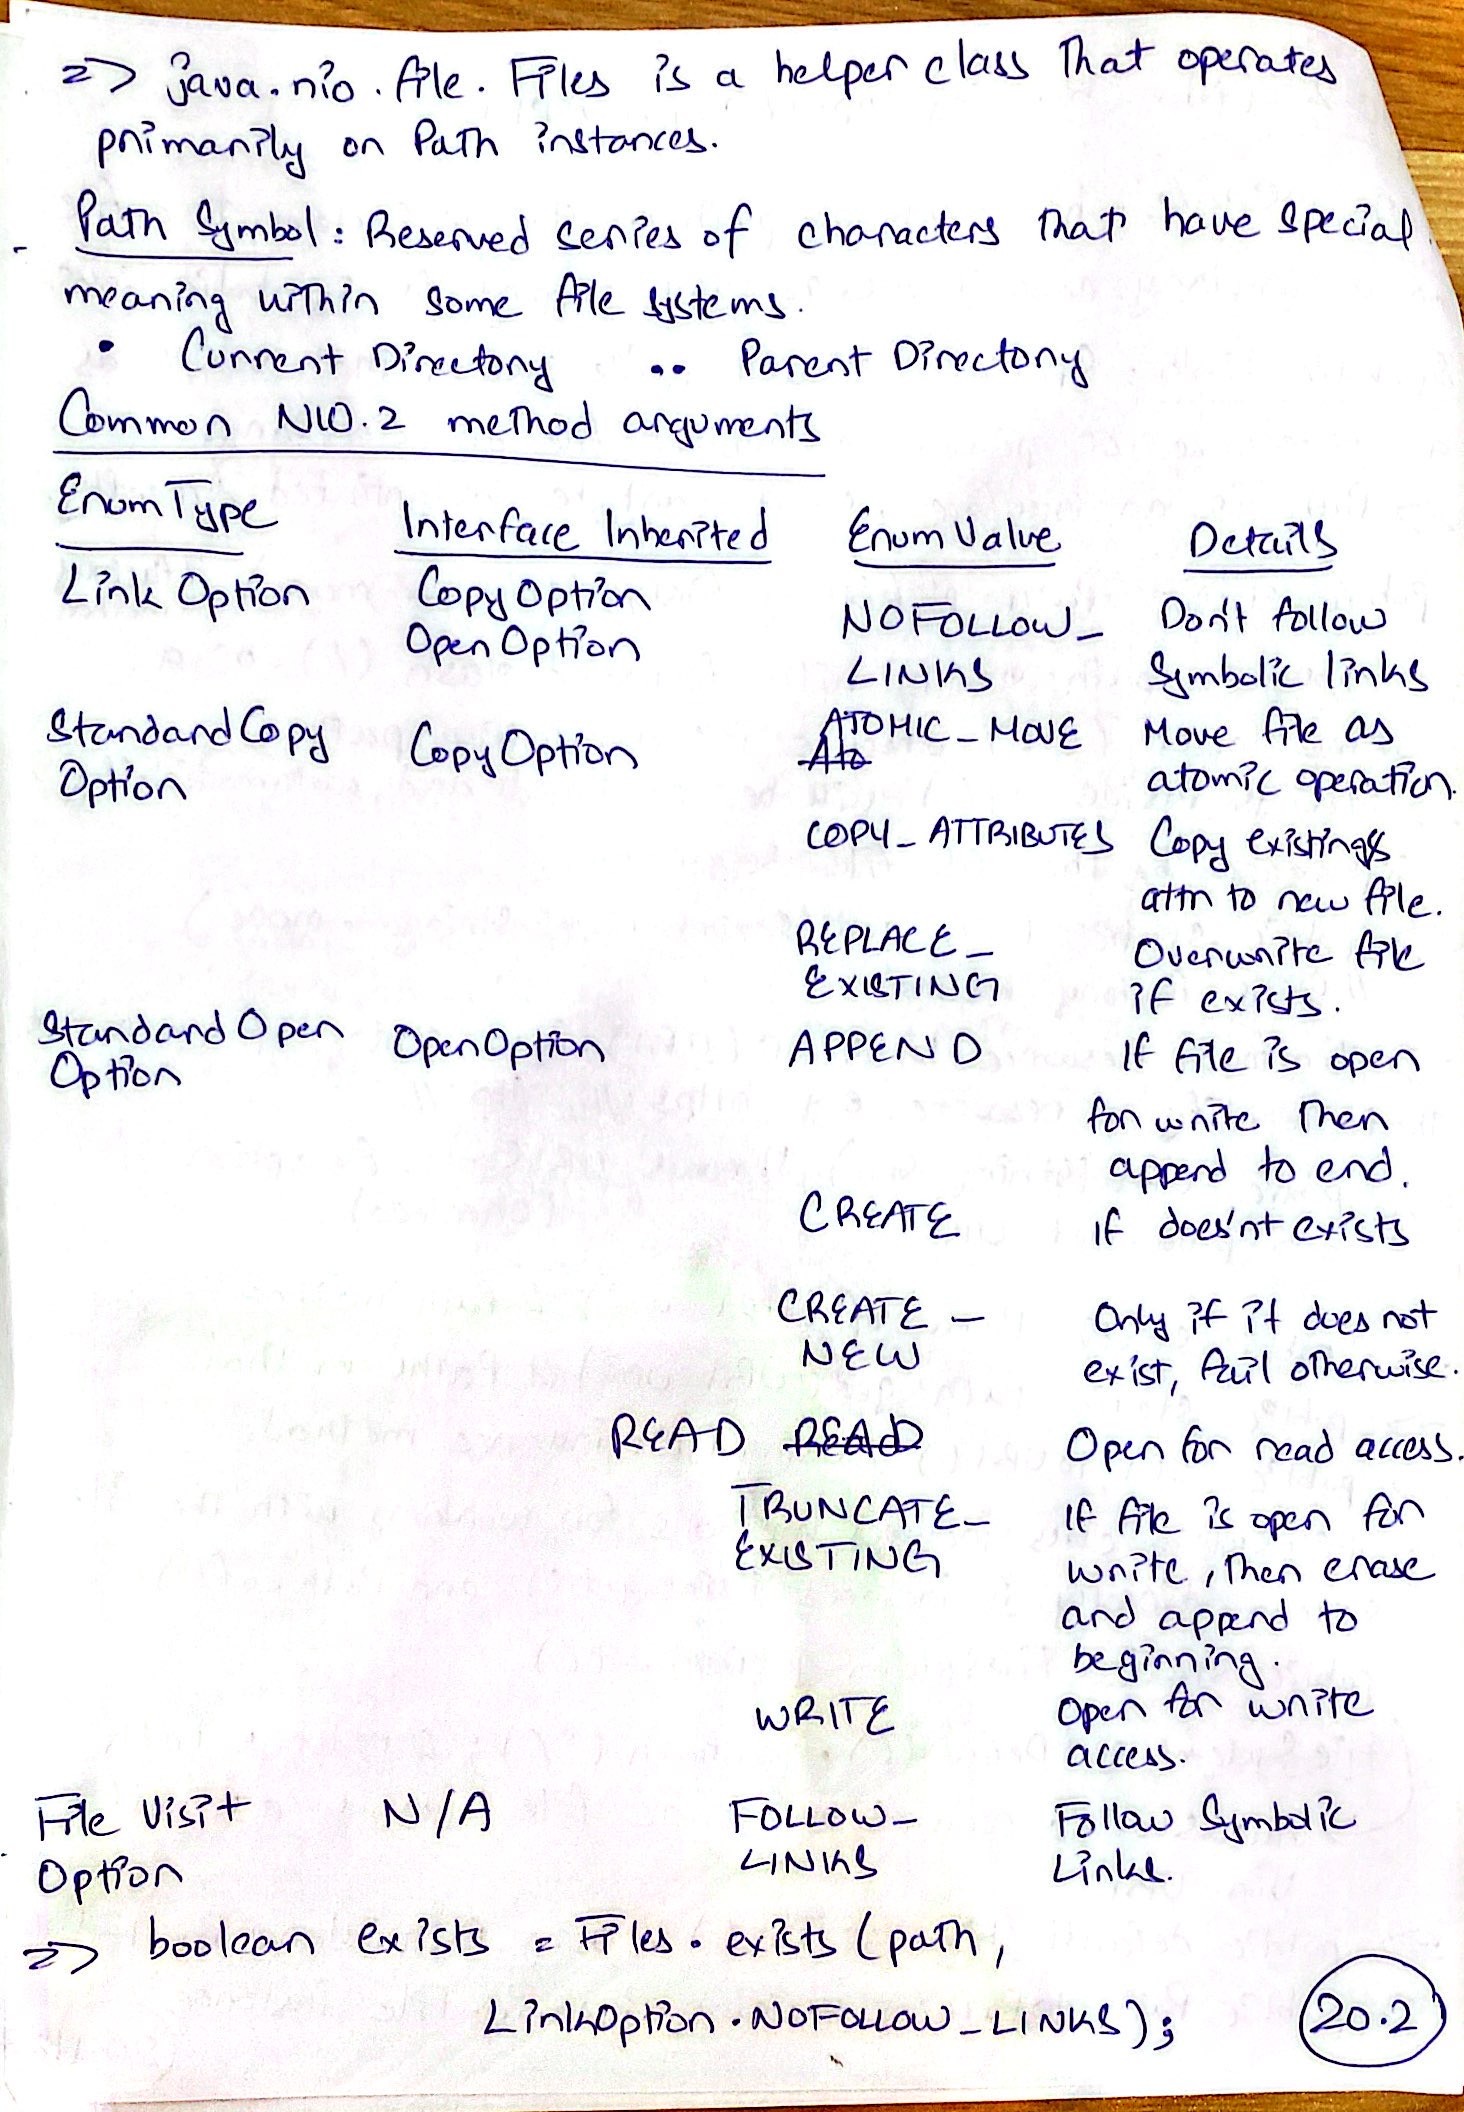 => java.nio.file.Files is a helper class that operates
primarily on Path instances.
Path Symbol: Reserved series of characters that have special
meaning within some file systems.
. Current Directory .. Parent Directory
Common NIO.2 method arguments
Enum Type Interface Inherited Enum Value Details
Link Option CopyOption NOFOLLOW_ Don't follow
OpenOption LINKS Symbolic links
StandardCopy CopyOption ATOMIC_MOVE Move file as
Option Ato atomic operation.
COPY_ATTRIBUTES Copy existings
attr to new file.
REPLACE_ Overwrite file
EXISTING if exists.
Standard Open OpenOption APPEND If file is open
Option for write then
append to end.
CREATE if does'nt exists
CREATE_ Only if it does not
NEW exist, fail otherwise.
READ READ Open for read access.
TRUNCATE_ If file is open for
EXISTING write, then erase
and append to
beginning.
WRITE Open for write
access.
File Visit N/A FOLLOW_ Follow Symbolic
Option LINKS Links.
=> boolean exists = Files.exists(path,
LinkOption.NOFOLLOW_LINKS);
20.2